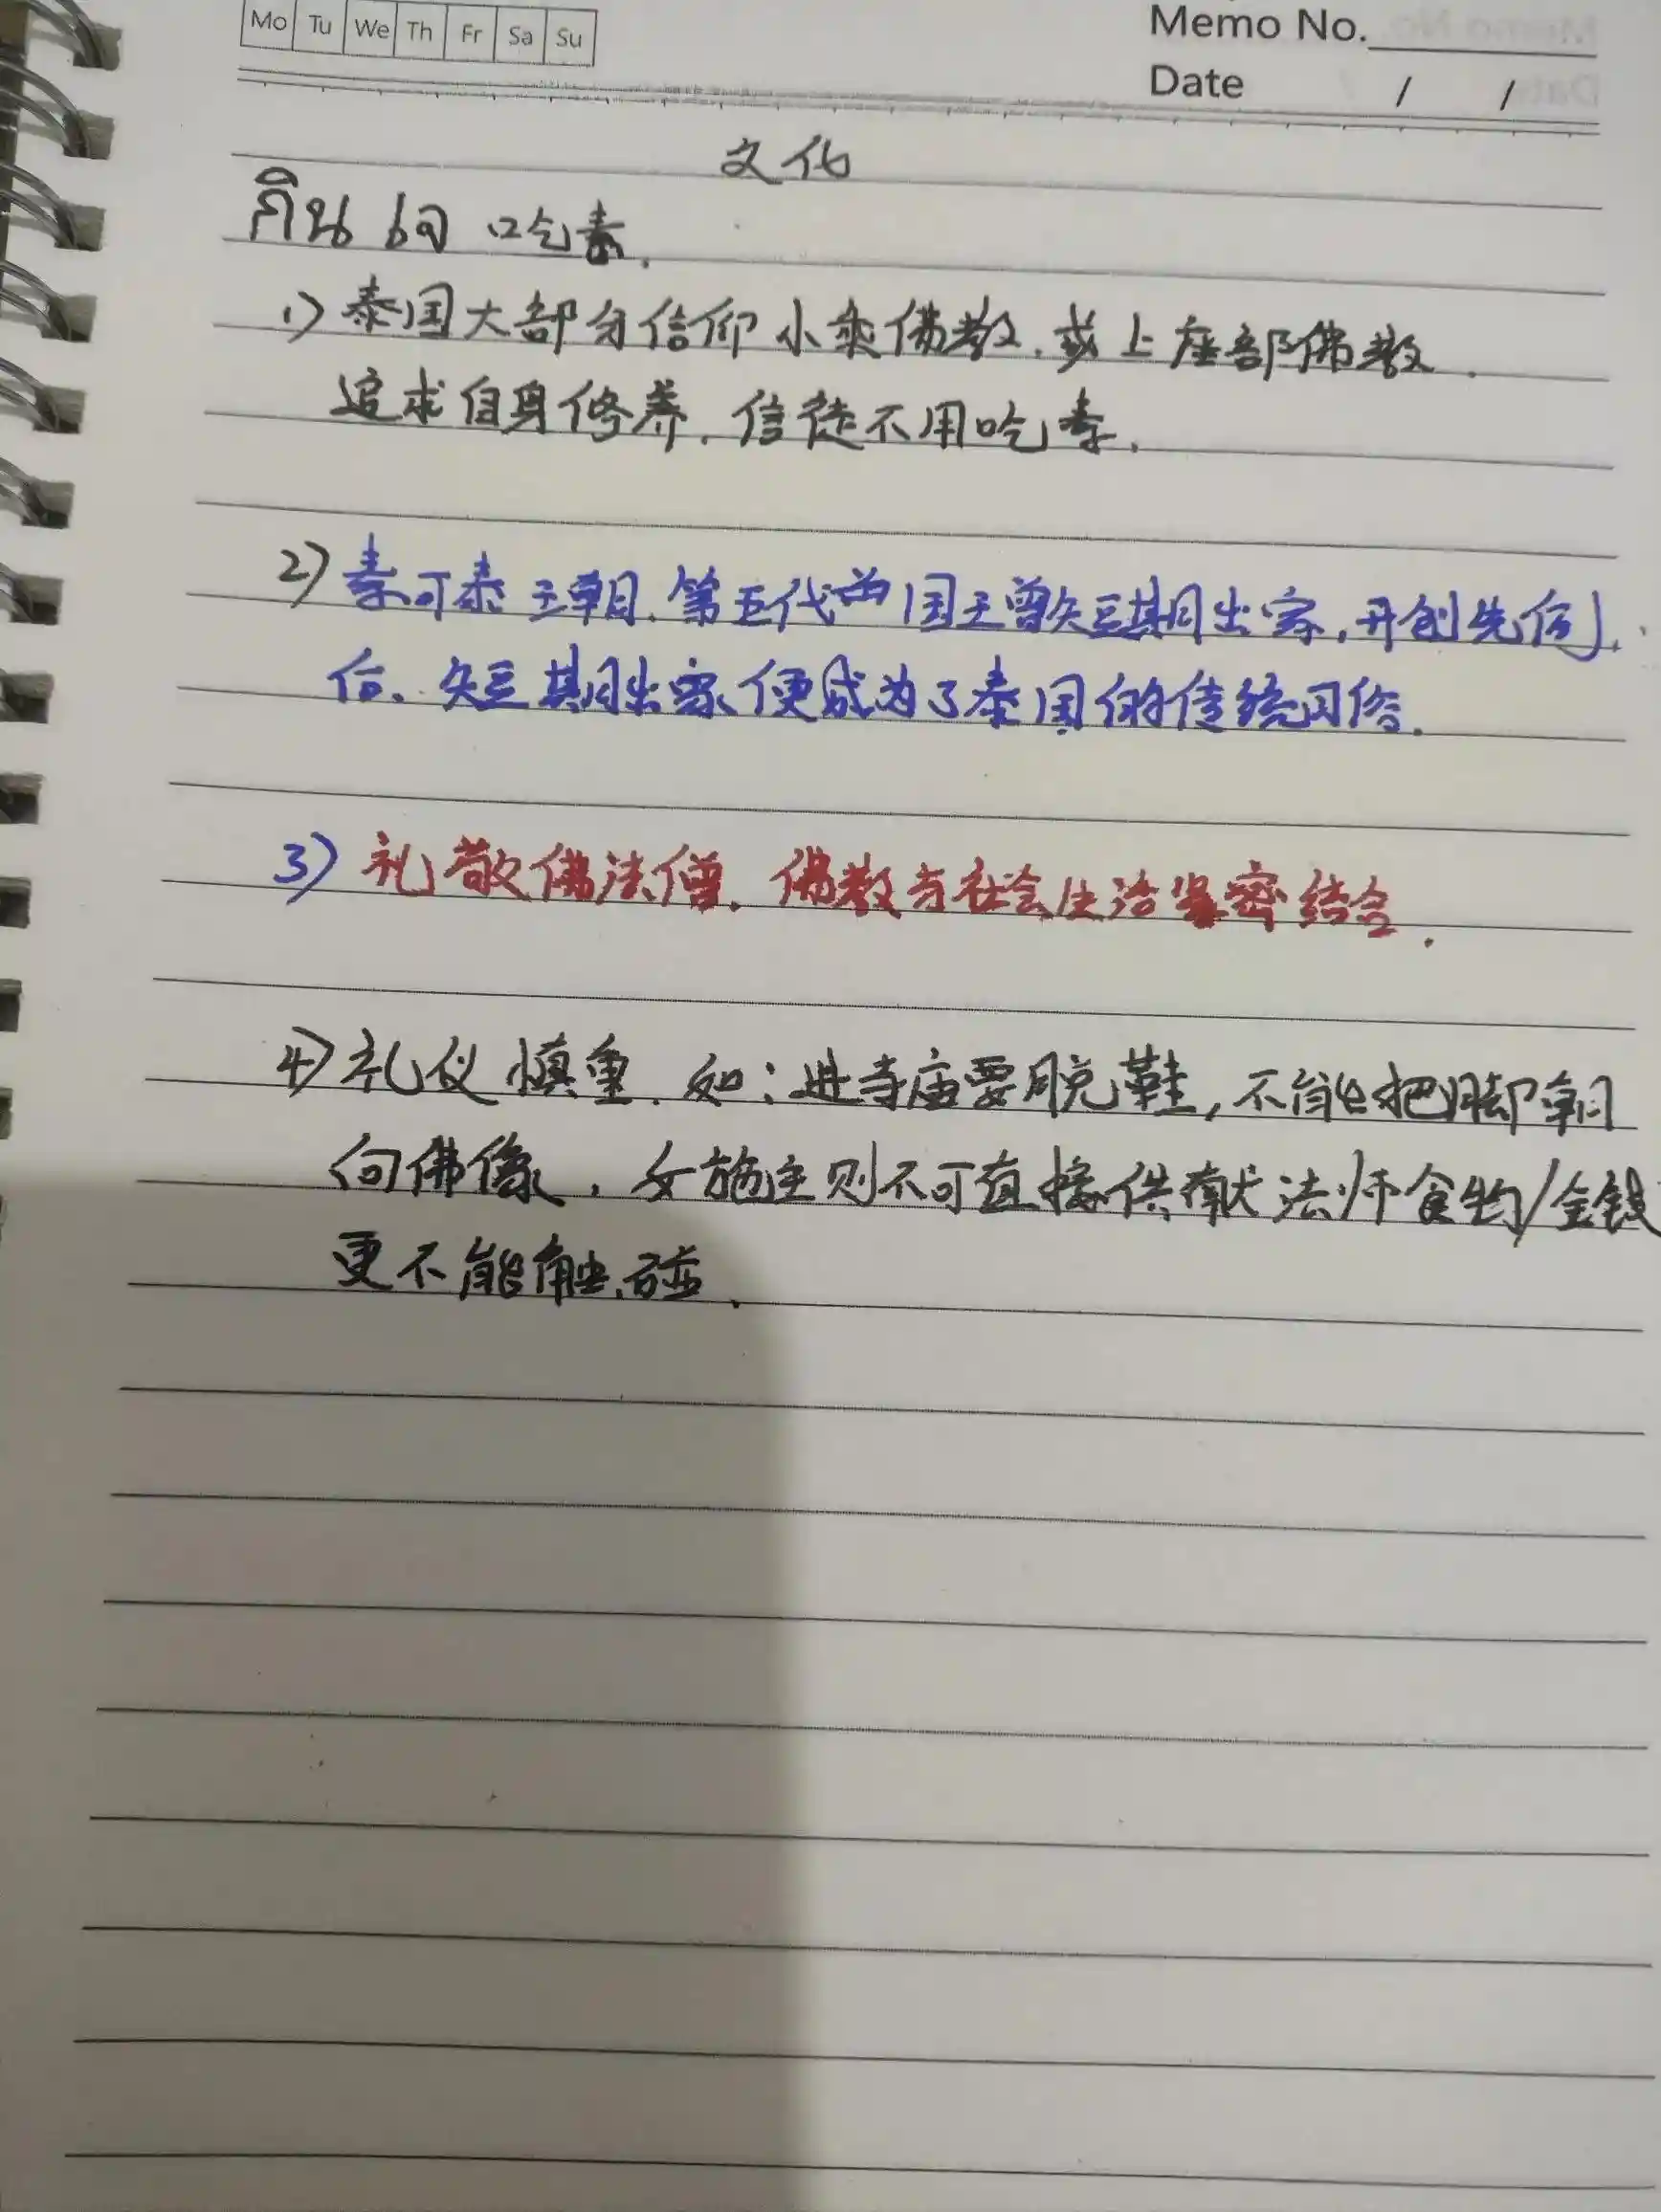 Mo Tu We Th Fr Sa Su
Memo No.
Date / /
文化
กิน เจ 吃素.
1) 泰国大部分信仰小乘佛教.或上座部佛教.
追求自身修养.信徒不用吃素.
2) 素可泰王朝.第五代 国王曾短期出家,开创先例.
后.短期出家便成为了泰国的传统习俗.
3) 礼敬佛法僧.佛教与社会生活紧密结合.
4) 礼仪慎重.如:进寺庙要脱鞋,不能把脚朝
向佛像.女施主则不可直接供献法师食物/金钱
更不能触碰.